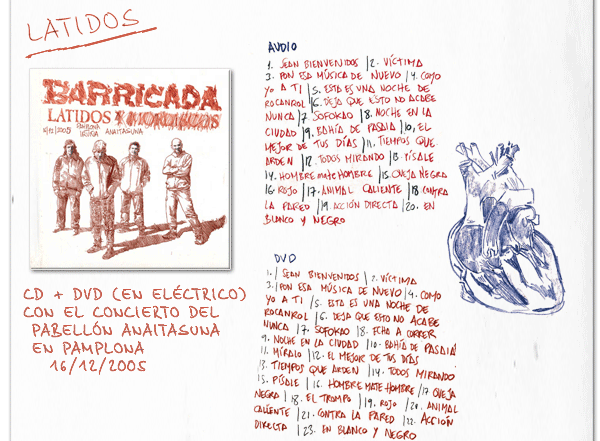 LATIDOS
BARRICADA
LATIDOS Y MORDISCOS
16/12/2005 PAMPLONA IRUÑA ANAITASUNA
CD + DVD (EN ELÉCTRICO)
CON EL CONCIERTO DEL
PABELLÓN ANAITASUNA
EN PAMPLONA
16/12/2005
AUDIO
1. SEAN BIENVENIDOS | 2. VÍCTIMA
3. PON ESA MÚSICA DE NUEVO | 4. COMO
YO A TI | 5. ESTA ES UNA NOCHE DE
ROCANROL | 6. DEJA QUE ESTO NO ACABE
NUNCA | 7. SOFOKAO | 8. NOCHE EN LA
CIUDAD | 9. BAHÍA DE PASAIA | 10. EL
MEJOR DE TUS DÍAS | 11. TIEMPOS QUE
ARDEN | 12. TODOS MIRANDO | 13. PÍSALE
14. HOMBRE MATE HOMBRE | 15. OVEJA NEGRA
16. ROJO | 17. ANIMAL CALIENTE | 18. CONTRA
LA PARED | 19. ACCIÓN DIRECTA | 20. EN
BLANCO Y NEGRO
DVD
1. | SEAN BIENVENIDOS | 2. VÍCTIMA
3. | PON ESA MÚSICA DE NUEVO | 4. COMO
YO A TI | 5. ESTA ES UNA NOCHE DE
ROCANROL | 6. DEJA QUE ESTO NO ACABE
NUNCA | 7. SOFOKAO | 8. ECHO A CORRER
9. NOCHE EN LA CIUDAD | 10. BAHÍA DE PASAIA
11. MÍRALO | 12. EL MEJOR DE TUS DÍAS
13. TIEMPOS QUE ARDEN | 14. TODOS MIRANDO
15. PÍSALE | 16. HOMBRE MATE HOMBRE | 17. OVEJA
NEGRA | 18. EL TRAMPO | 19. ROJO | 20. ANIMAL
CALIENTE | 21. CONTRA LA PARED | 22. ACCIÓN
DIRECTA | 23. EN BLANCO Y NEGRO